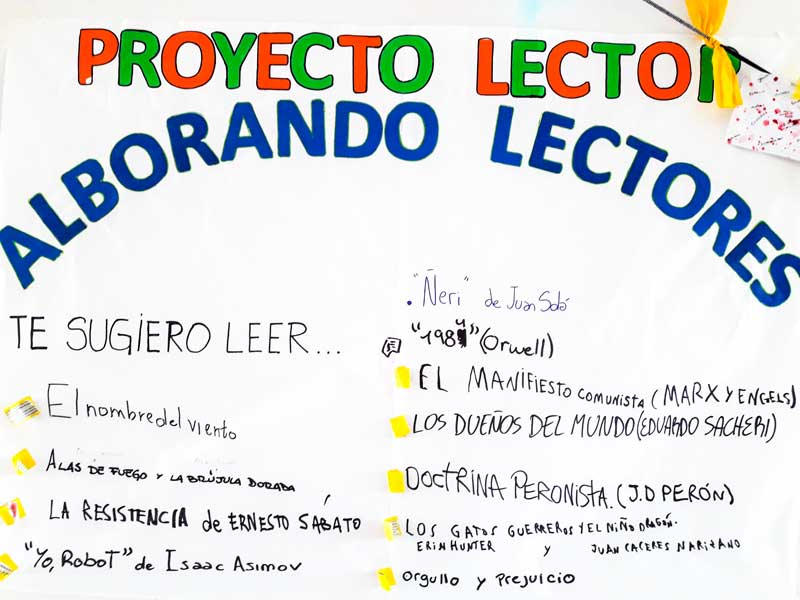 PROYECTO LECTOR
ALBORANDO LECTORES
TE SUGIERO LEER...
El nombre del viento
ALAS DE FUEGO Y LA BRÚJULA DORADA
LA RESISTENCIA de ERNESTO SÁBATO
"Yo, Robot" de Isaac Asimov
. "Ñeri" de Juan Solá
"1984" (Orwell)
EL MANIFIESTO COMUNISTA (MARX Y ENGELS)
LOS DUEÑOS DEL MUNDO (EDUARDO SACHERI)
DOCTRINA PERONISTA. (J.D PERÓN)
LOS GATOS GUERREROS Y EL NIÑO DRAGÓN.
ERIN HUNTER Y JUAN CACERES NARIZANO
Orgullo y Prejuicio